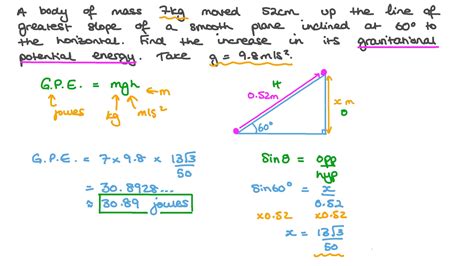 A body of mass 7kg moved 52cm up the line of
greatest slope of a smooth plane inclined at 60° to
the horizontal. Find the increase in its gravitational
potential energy. Take g = 9.8m/s².
G.P.E. = mgh
m
joules
kg
m/s²
H
0.52m
60°
x m
O
G.P.E. = 7 × 9.8 × 13√3/50
= 30.8928...
≈ 30.89 joules
sinθ = opp/hyp
sin60° = x/0.52
×0.52 ×0.52
x = 13√3/50